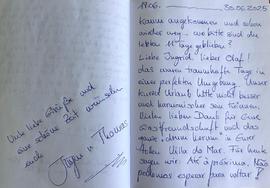 Viele liebe Grüße und
eine schöne Zeit wünschen
euch
Jürgen u. Thomas
19.06. — 30.06.2025
kaum angekommen und schon
wieder weg... wo bitte sind die
letzten 11 Tage geblieben?
Liebe Ingrid, lieber Olaf!
das waren traumhafte Tage in
einer perfekten Umgebung. Unser
Kurzurlaub hätte nicht besser
und harmonischer sein können.
Vielen lieben Dank für Eure
Gastfreundschaft und das
in Eurer
Villa do Mar. Für heute
sagen wir: Até à próxima, Não
podemos esperar para voltar!